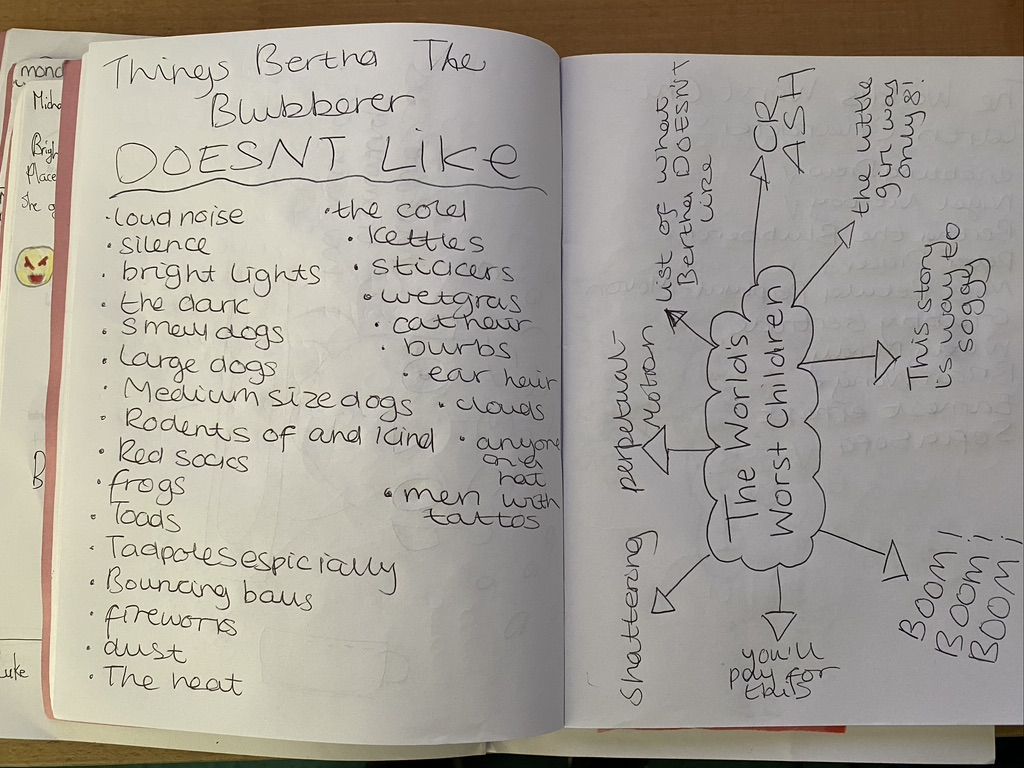 mond
Micha
Brigh
Place
she g
B
Luke
Things Bertha The
Blubberer
DOESNT LiKE
· loud noise
· silence
· bright lights
· the dark
· smelly dogs
· Large dogs
· Medium size dogs
· Rodents of and kind
· Red socks
· frogs
· Toads
· Tadpoles espicially
· Bouncing balls
· fireworks
· dust
· The heat
· the cold
· kettles
· stickers
· wetgras
· cat hair
· burbs
· ear hair
· clouds
· anyone
on a
hat
· men with
tattos
The Worlds
Worst Children
shattering
perpetual-
Motion
List of what
Bertha DOESN'T
like
OR
ASH
the little
girl was
only 8!
This story
is way to
soggy
BOOM!
BOOM!
BOOM!
you'll
pay for
this